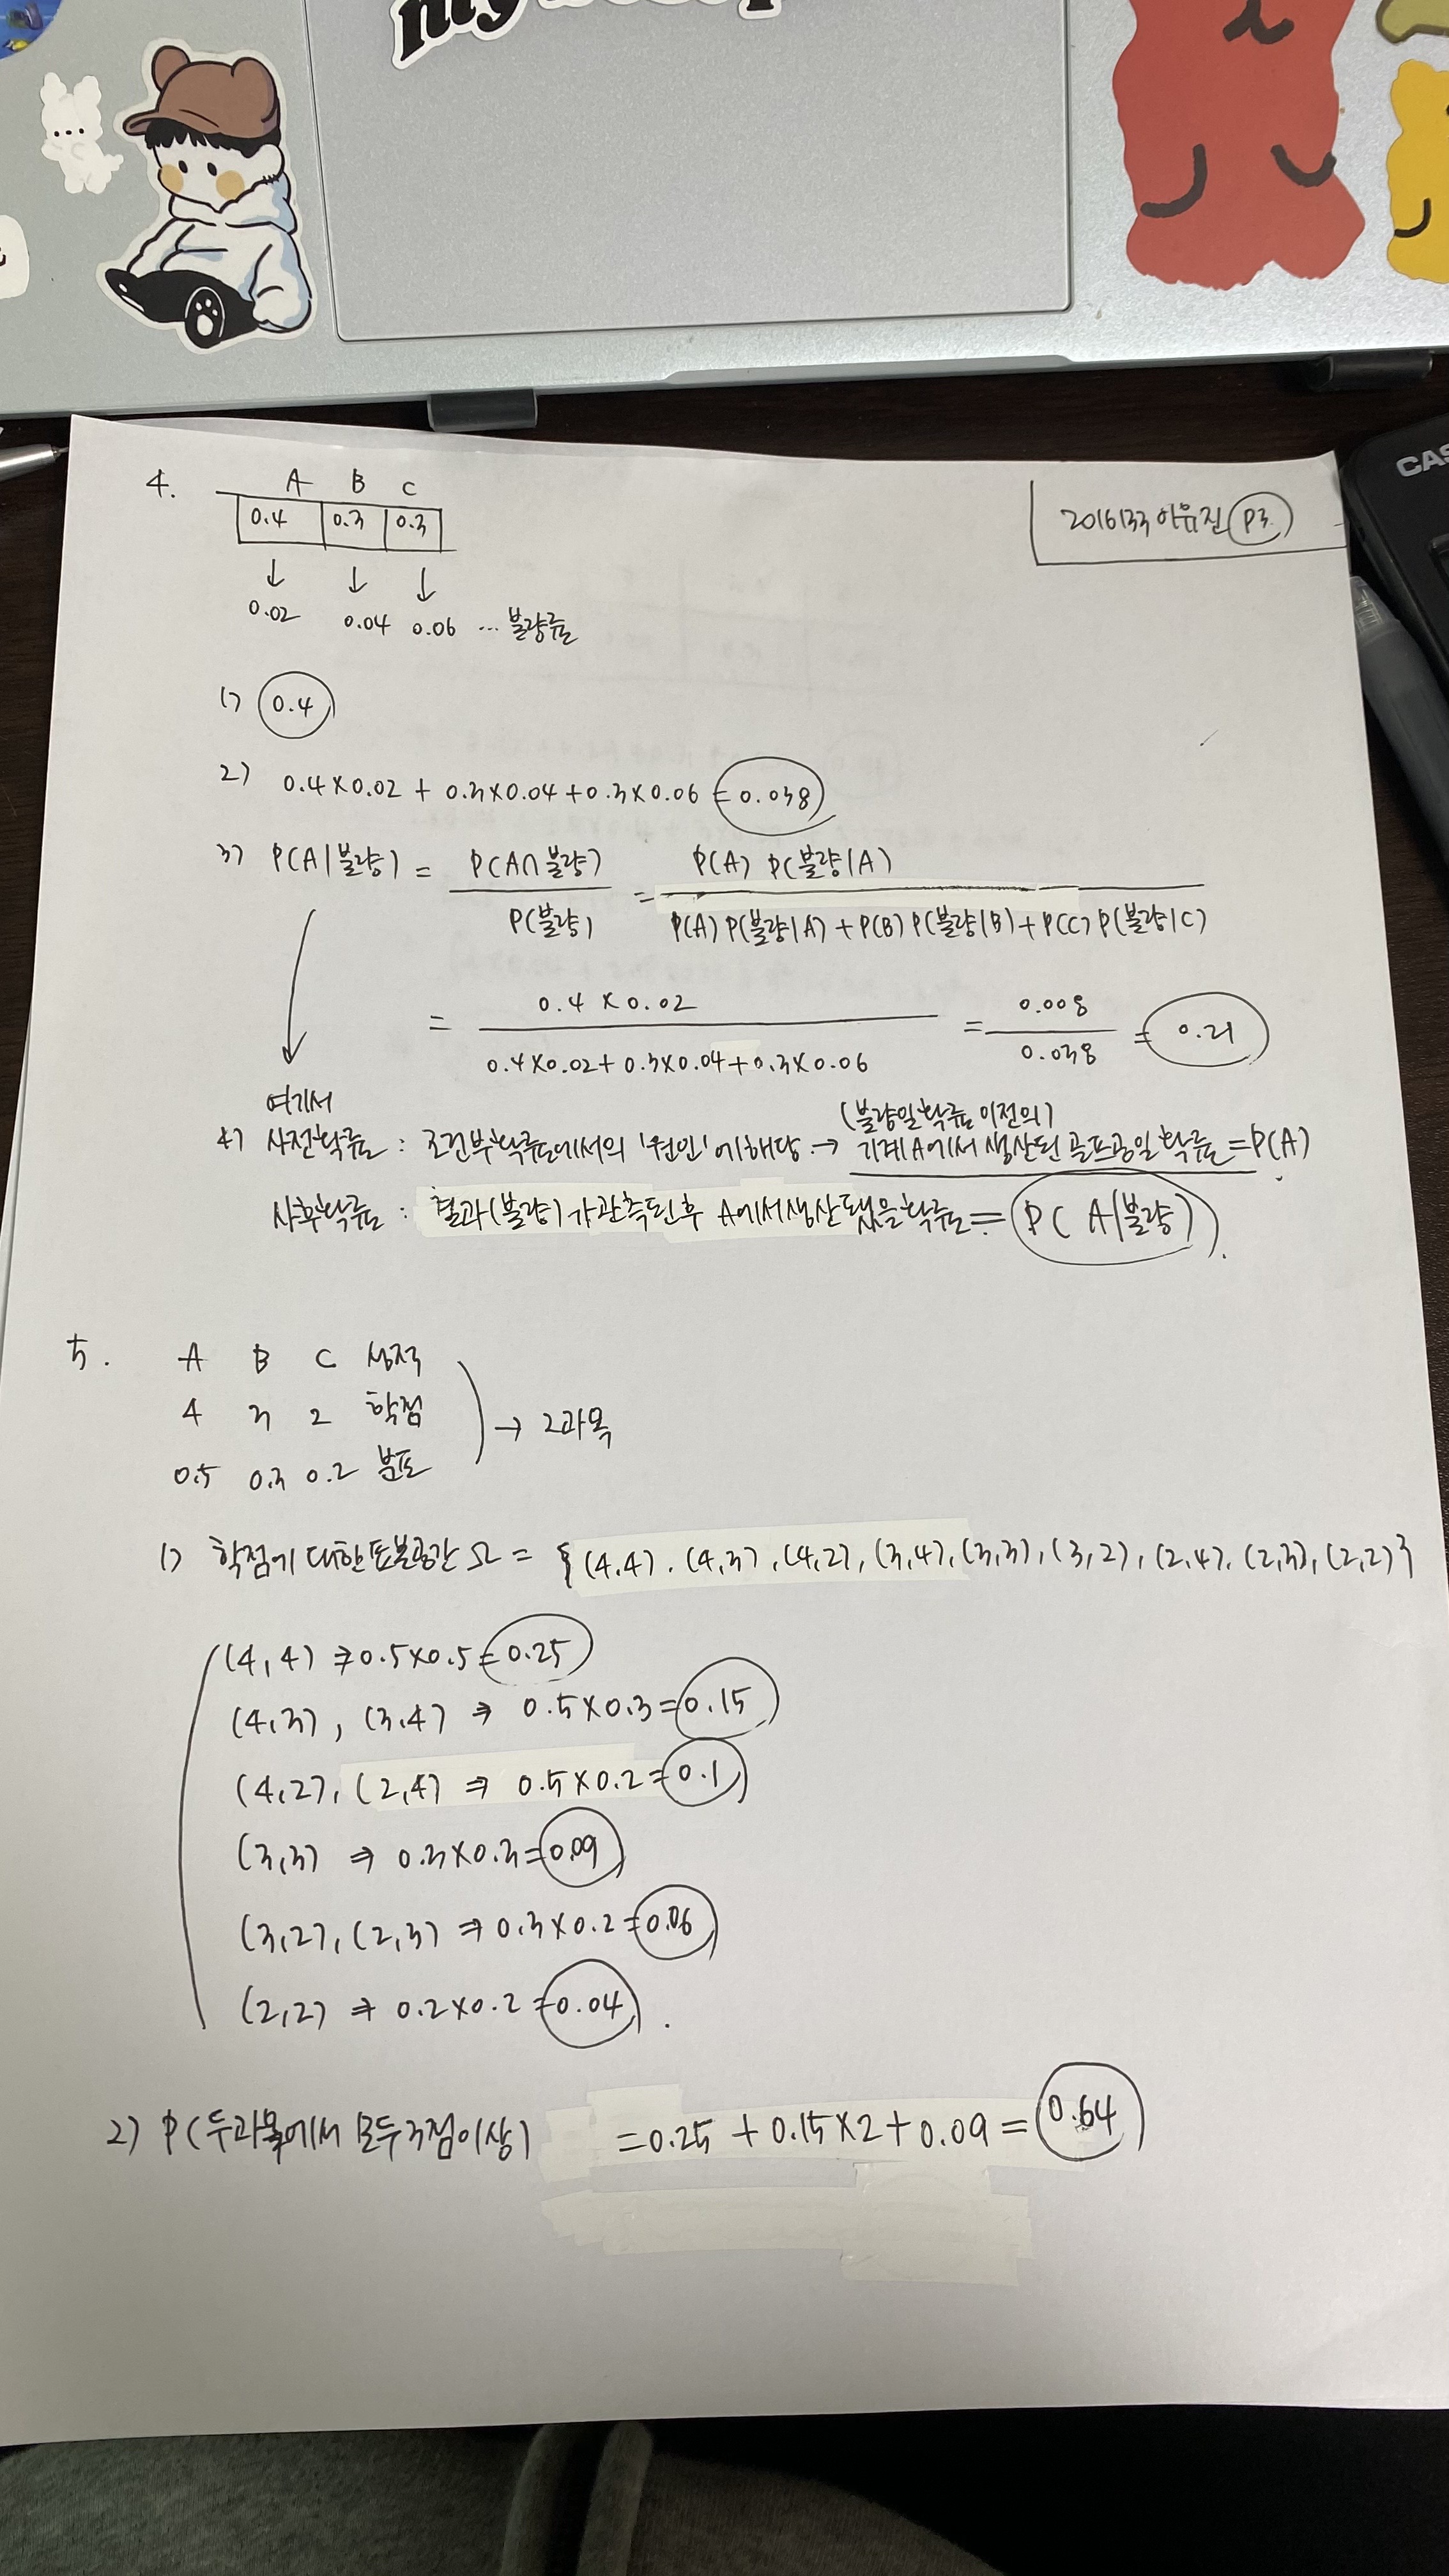 my
CAS
2016133 이유진 P3.
4.
A B C
0.4 0.3 0.3
↓ ↓ ↓
0.02 0.04 0.06 … 불량률
1) 0.4
2) 0.4×0.02 + 0.3×0.04 + 0.3×0.06 = 0.038
3) P(A|불량) = P(A∩불량) / P(불량) = P(A) P(불량|A) / P(A) P(불량|A) + P(B) P(불량|B) + P(C) P(불량|C)
= 0.4 × 0.02 / 0.4×0.02 + 0.3×0.04 + 0.3×0.06 = 0.008 / 0.038 = 0.21
여기서
(불량일 확률 이전의)
4) 사전확률 : 조건부확률에서의 '원인'에 해당 → 기계A에서 생산된 골프공일 확률 = P(A).
사후확률 : 결과(불량)가 관측된 후 A에서 생산됐을 확률 = P(A|불량).
5. A B C 성적
4 3 2 학점
0.5 0.3 0.2 분포
→ 2과목
1) 학점에 대한 표본공간 Ω = {(4,4), (4,3), (4,2), (3,4), (3,3), (3,2), (2,4), (2,3), (2,2)}
(4,4) ⇒ 0.5×0.5 = 0.25
(4,3), (3,4) ⇒ 0.5×0.3 = 0.15
(4,2), (2,4) ⇒ 0.5×0.2 = 0.1
(3,3) ⇒ 0.3×0.3 = 0.09
(3,2), (2,3) ⇒ 0.3×0.2 = 0.06
(2,2) ⇒ 0.2×0.2 = 0.04.
2) P(두과목에서 모두 3점이상) = 0.25 + 0.15×2 + 0.09 = 0.64